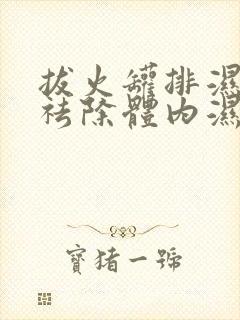 拔火罐排濕
祛除體內濕
寶豬一號